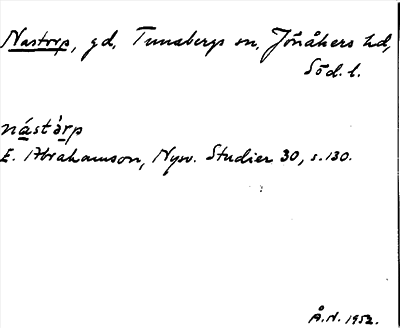 Nastorp, gd, Tunabergs sn, Jönåkers hd,
Söd. l.
nástàrp
E. Abrahamson, Nysv. Studier 30, s. 130.
Å.N. 1952.